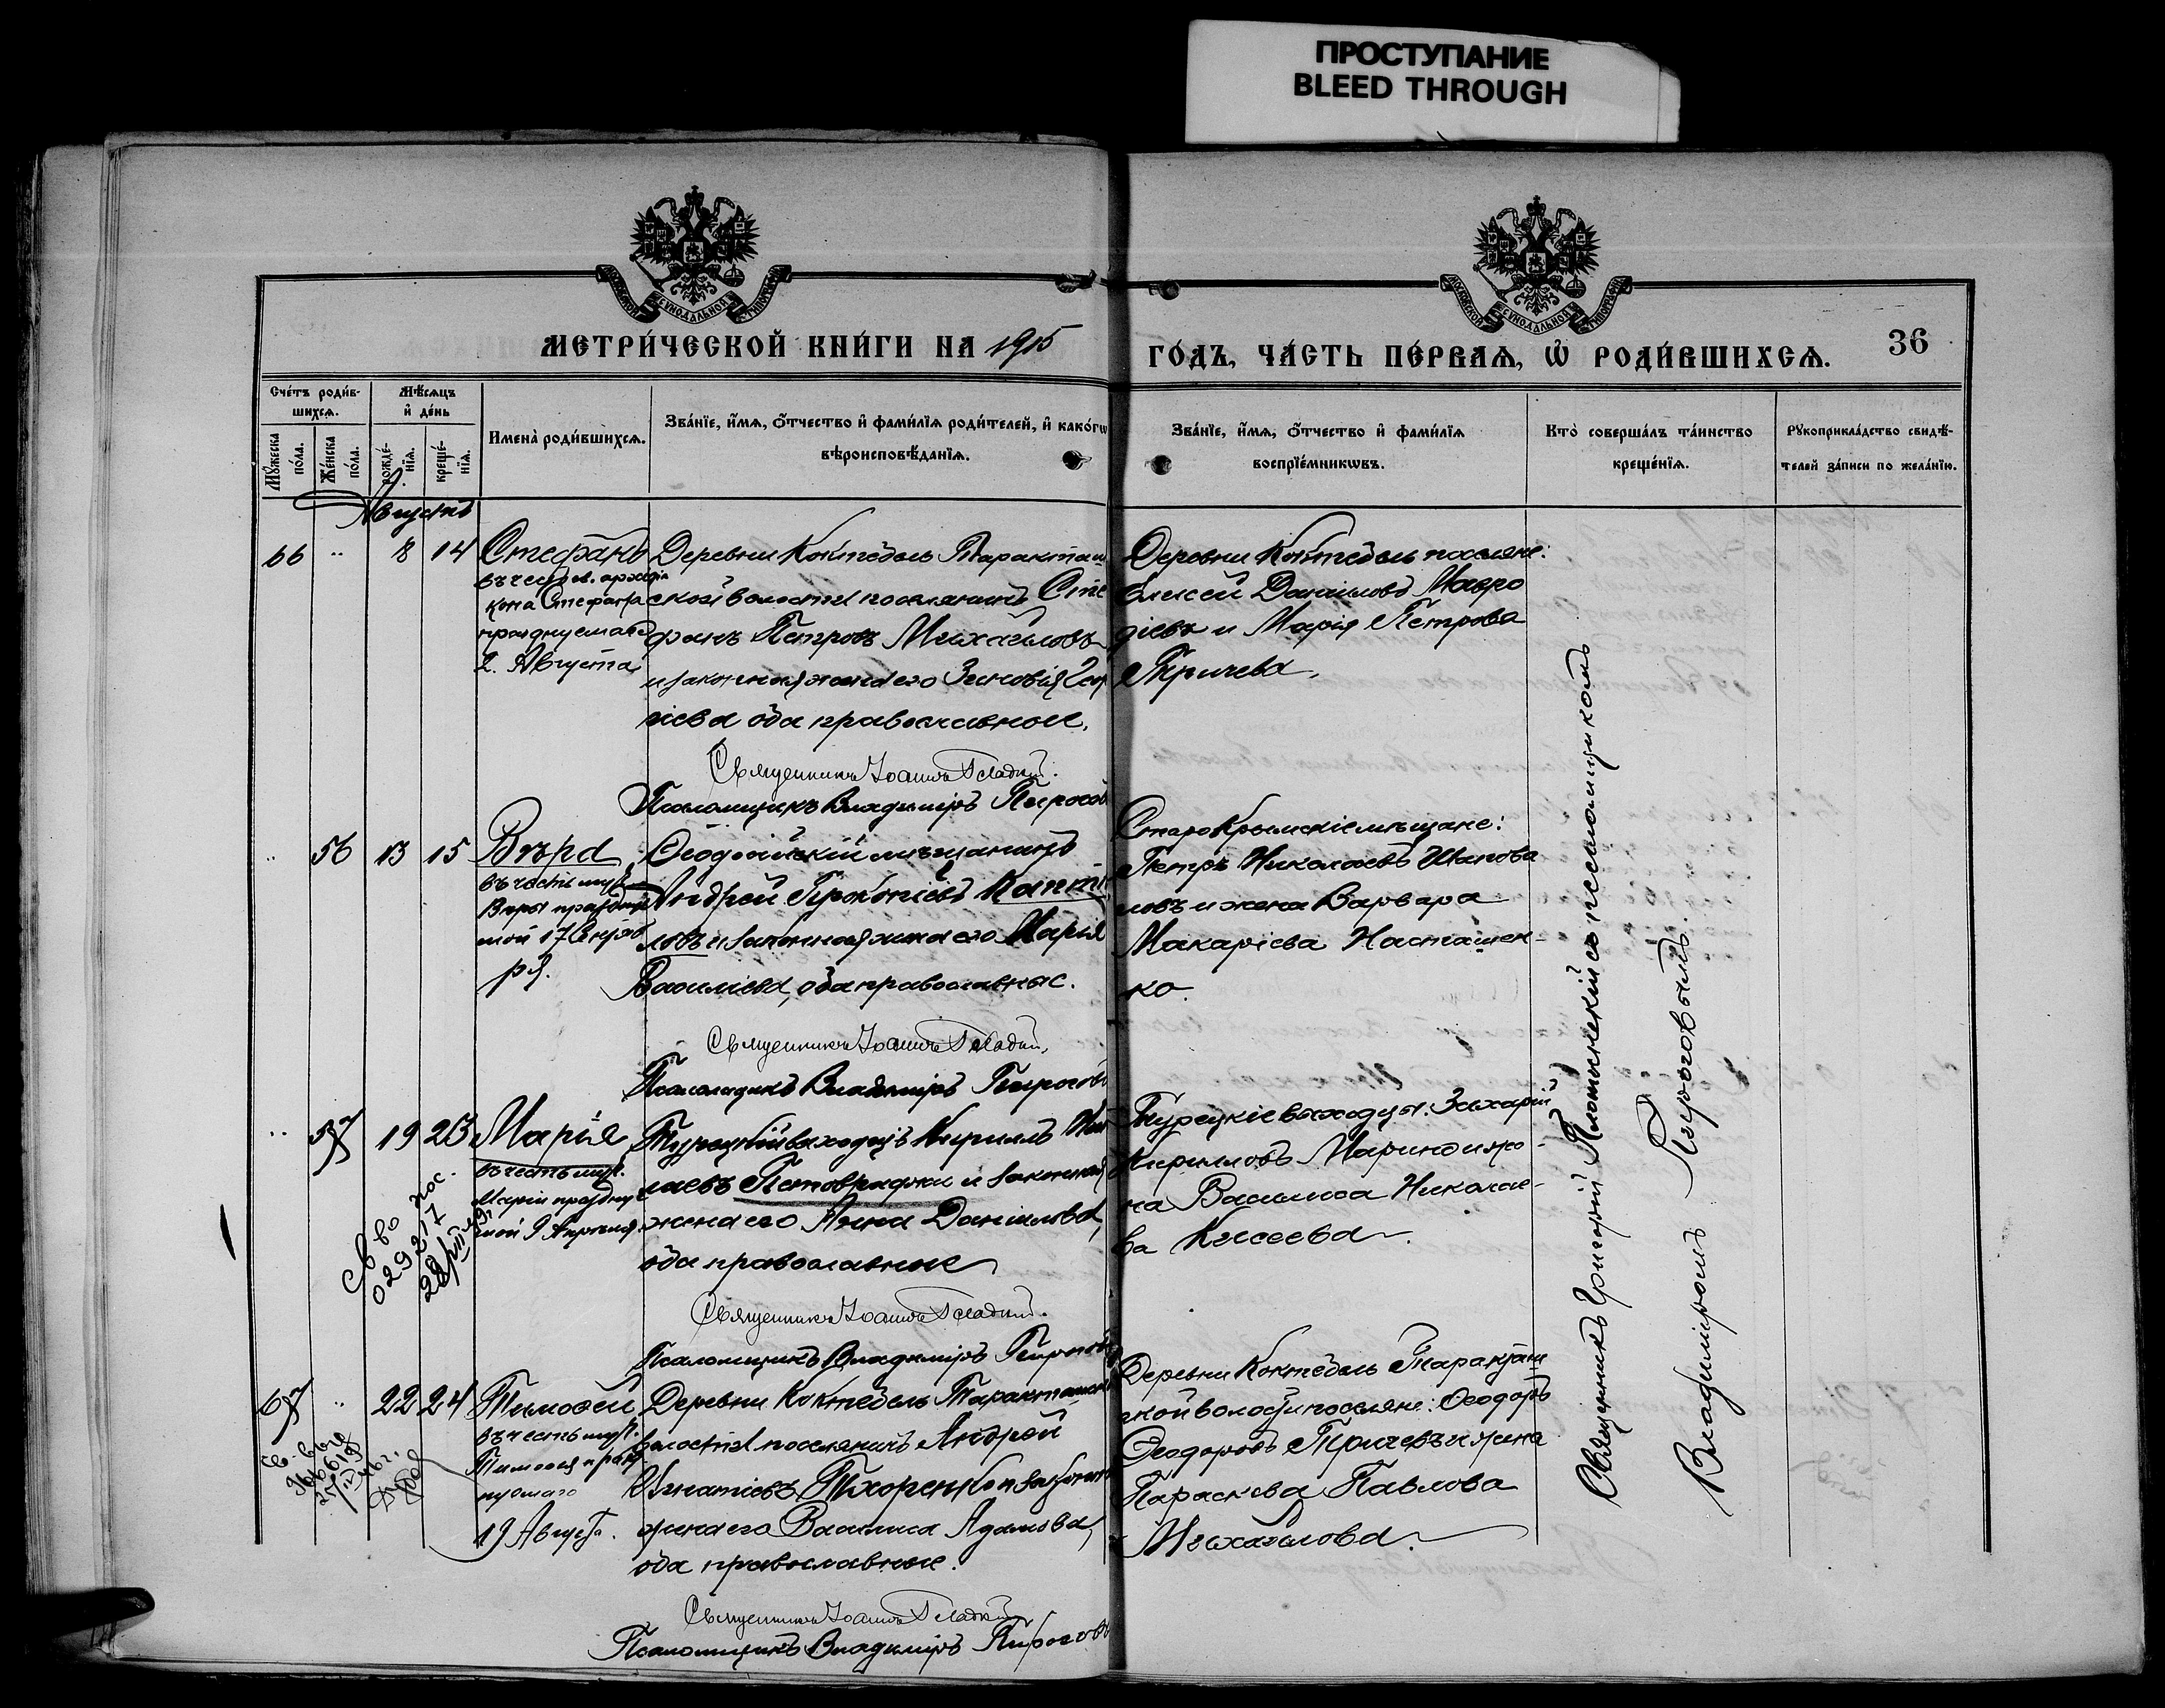 ПРОСТУПАНИЕ
BLEED THROUGH
МЕТРИ́ЧЕСКОЙ КНИ́ГИ НА 1915
ГО́ДЪ, ЧА́СТЬ ПЕ́РВАѦ, Ѡ҆ РОДИ́ВШИХСѦ. 36
Сче́тъ роди́в-
шихсѧ.
Мѣ́сѧцъ
и҆ де́нь
Мꙋ́жеска по́ла.
Же́нска по́ла.
рожде́-нїѧ.
креще́-нїѧ.
Имена̀ роди́вшихсѧ.
Зва́нїе, и҆́мѧ, ѻ҆́тчество и҆ фами́лїѧ роди́телей, и҆ како́гѡ
вѣроисповѣ́данїѧ.
Зва́нїе, и҆́мѧ, ѻ҆́тчество и҆ фами́лїѧ
воспрїе́мникѡвъ.
Кто̀ соверша́лъ та́инство
креще́нїѧ.
Рꙋкоприкла́дство свидѣ́-
телей за́писи по жела́нїю.
Августъ
66 " 8 14 Стефанъ
въ чест св. архидіа
кона Стефана
празднуемаго
2. Августа
Деревни Коктебель Таракташ
ской волости поселянинъ Сте
фанъ Петровъ Михайловъ
и законная жена его Зиновія Геор
гіева оба православные.
Священникъ Іоаннъ Гладкий.
Псаломщикъ Владиміръ Пирогов
Деревни Коктебель поселяне:
Елисей Даниловъ Мавро
діевъ и Марія Петрова
Тричева.
" 56 13 15 Вѣра
въ честь муч.
Вѣры праздну
мой 17 Сентяб
ря.
Ѳеодосійскій мѣщанинъ
Андрей Прокопіевъ Капти
ловъ и законная жена его Марія
Василіева, оба православные.
Священникъ Іоаннъ Гладкий.
Псаломщикъ Владиміръ Пирогов
СтароКрымскіе мѣщане:
Петръ Николаевъ Шапова
ловъ и жена Варвара
Макаріева Насташен-
ко.
" 57 19 23 Марія
въ честь муч.
Маріи праздну
мой 9 Апрѣля
Св во пос.
029217
Турецкій выходецъ Кириллъ Ник
лаевъ и законная
жена его Анна Даніилова,
оба православные
Священникъ Іоаннъ Гладкий.
Псаломщикъ Владиміръ Пирогов
Турецкіе выходцы: Захарій
Кирилловъ Марин и же-
на Василиса Николае-
ва Кисеева.
67 " 22 24 Тимоѳей
въ честь муч.
Тимоѳея празд
нуемаго
19 Августа.
Деревни Коктебель Таракташс
волости поселянинъ Андрей
Игнатіевъ Тихоренко и законная
жена его Василиса Адамова,
оба православные.
Священникъ Іоаннъ Гладкий
Псаломщикъ Владиміръ Пирогов
Деревни Коктебель Таракташ
ской волости поселяне: Ѳеодоръ
Ѳеодоровъ Тричевъ и жена
Параскева Павлова
Михайлова.
Священникъ Григорій съ псаломщикомъ
Владиміромъ Пироговымъ.